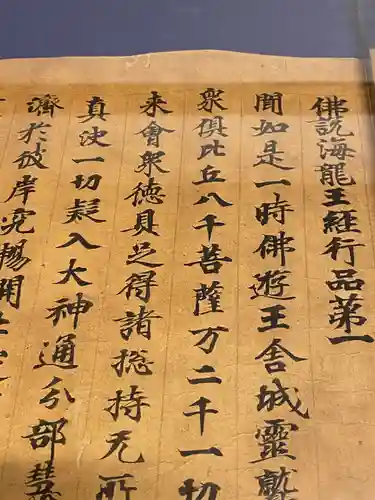 佛說海龍王經行品第一
聞如是一時佛遊王舍城靈鷲
衆俱比丘八千菩薩万二千一切
來會衆德具足得諸揔持无所
真決一切疑入大神通分部慧
濟於彼岸究暢開